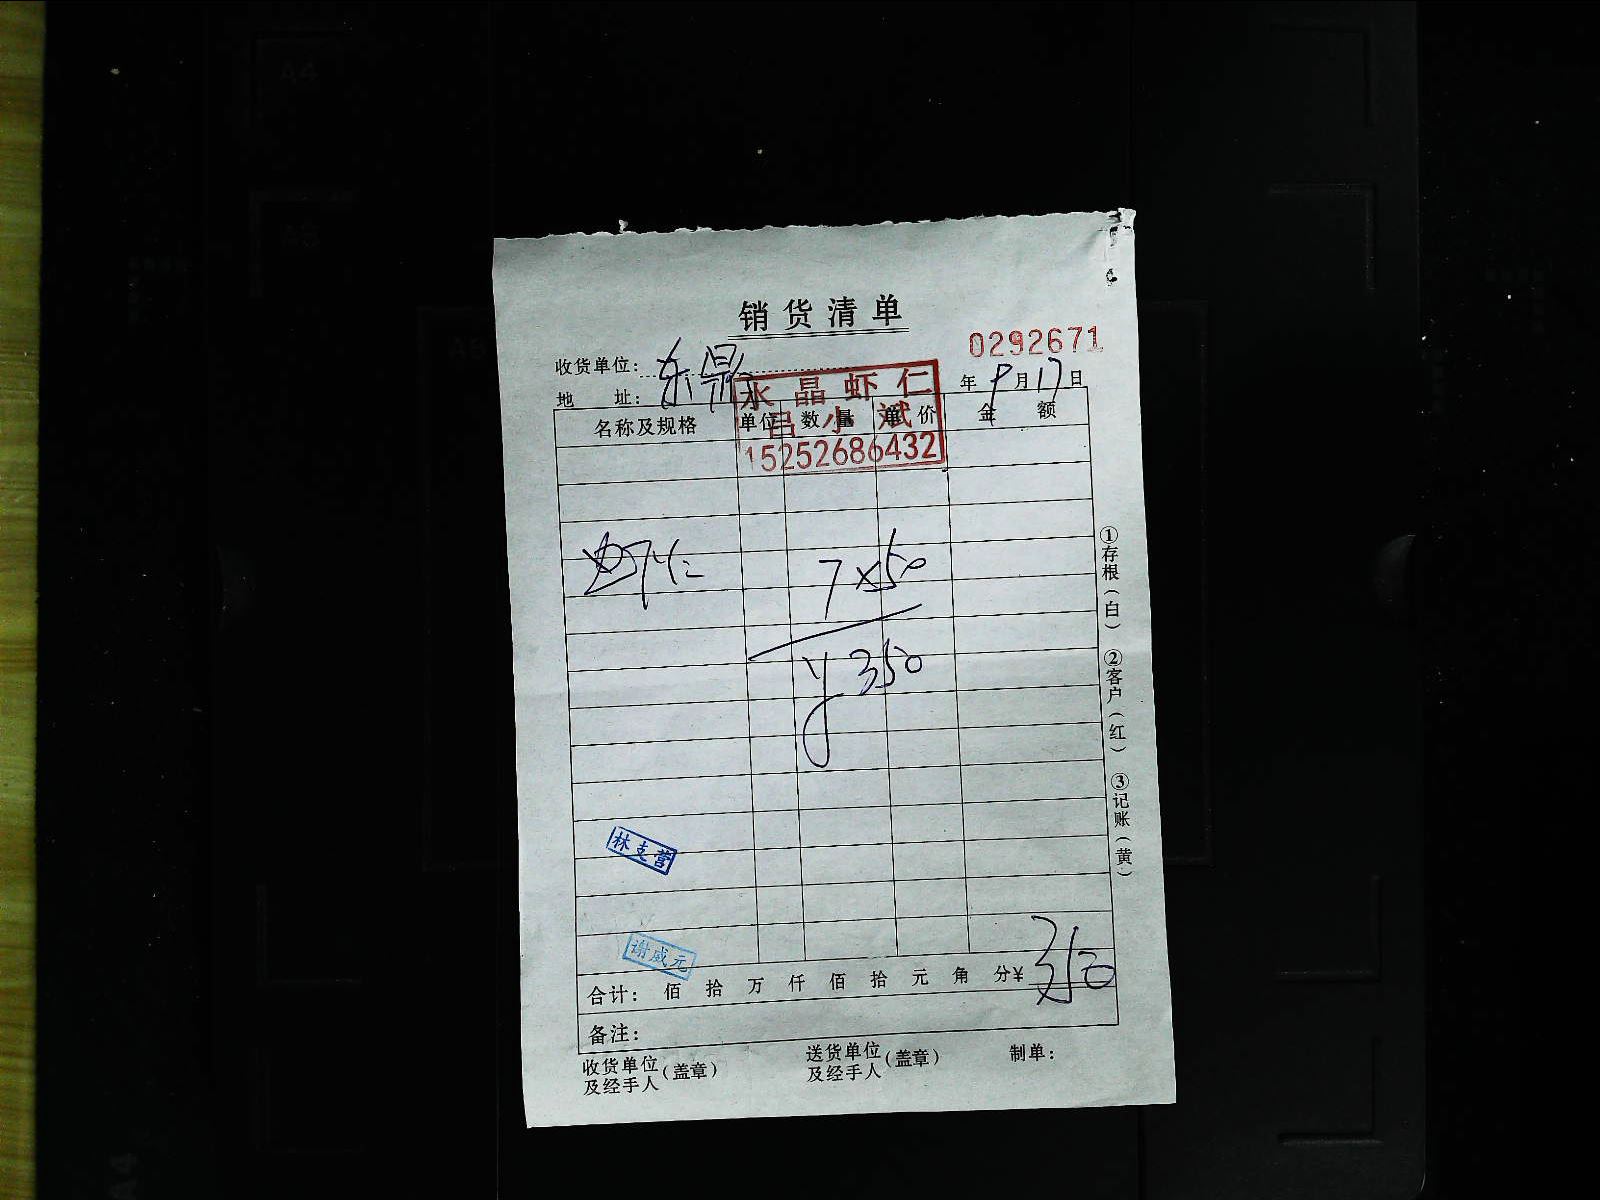 销货清单
0292671
收货单位: 东鼎
年 9 月 17 日
地 址:
水晶虾仁
吕小斌
15252686432
名称及规格 单位 数量 单价 金额
虾仁 7 x 50
y 350
林支营
谢威元
合计: 佰 拾 万 仟 佰 拾 元 角 分 ¥ 350
备注:
收货单位及经手人(盖章) 送货单位及经手人(盖章) 制单:
①存根(白) ②客户(红) ③记账(黄)
A4
A5